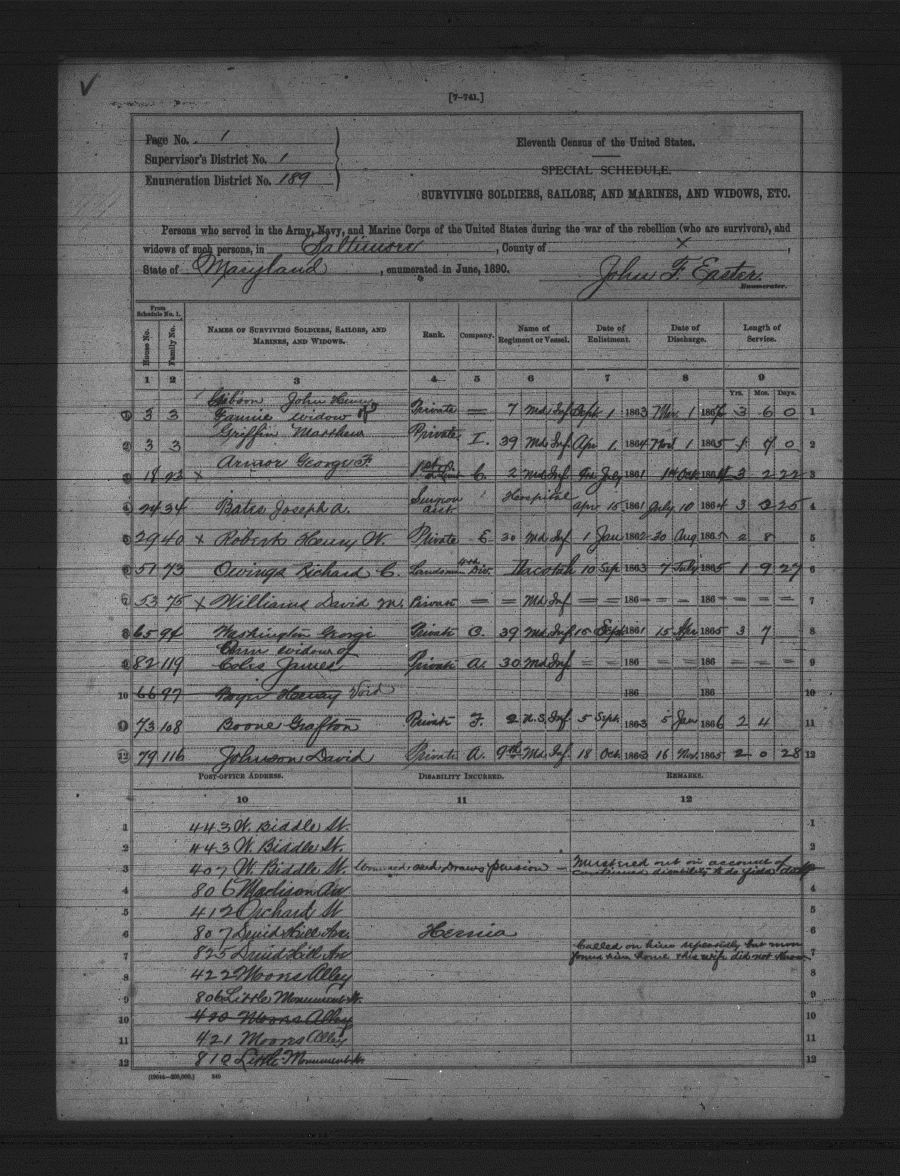 [7–741.]
Page No. 1
Supervisor's District No. 1
Enumeration District No. 189
Eleventh Census of the United States.
SPECIAL SCHEDULE.
SURVIVING SOLDIERS, SAILORS, AND MARINES, AND WIDOWS, ETC.
Persons who served in the Army, Navy, and Marine Corps of the United States during the war of the rebellion (who are survivors), and
widows of such persons, in Baltimore, County of x,
State of Maryland, enumerated in June, 1890. John F. Easter.
Enumerator.
From Schedule No. 1.
House No. Family No. NAMES OF SURVIVING SOLDIERS, SAILORS, AND MARINES, AND WIDOWS. Rank. Company. Name of Regiment or Vessel. Date of Enlistment. Date of Discharge. Length of Service.
1 2 3 4 5 6 7 8 9
Yrs. Mos. Days.
Gibson John Henry
1 3 3 Fannie widow of Private = 7 Md Inf Sept 1 1863 1 186 3 6 0 1
2 3 3 Griffin Matthew Private I. 39 Md Inf Apr 1 1864 1 1865 0 2
3 18 x Armor George F. C. 2 Md Inf July 1861 Oct 186 3 2 22 3
4 24 34 Bates Joseph A. Surgeon asst Hospital Apr 15 1861 July 10 1864 3 25 4
5 29 40 x Roberts Henry W. Private E 30 Md Inf 1 Jan 1862 30 Aug 1865 8 5
6 51 73 Owings Richard C. Landsman 10 Sep 1863 7 July 1865 1 9 27 6
7 53 75 x Williams David M. Private = = Md Inf = = 186 = = 186 = = = 7
8 65 94 Washington George Private C. 39 Md Inf 15 Sept 1861 15 Apr 1865 3 7 8
Ann widow of
9 82 119 Coles James Private A. 30 Md Inf = = 186 = = 186 = = = 9
10 66 97 Henry Void 186 186 10
11 73 108 Boone Grafton Private F. 2 U.S. Inf 5 Sept 1863 5 Jan 1866 2 4 11
12 79 116 Johnson David Private A. 9th Md Inf 18 Oct 1863 16 Nov 1865 2 0 28 12
POST-OFFICE ADDRESS. DISABILITY INCURRED. REMARKS.
10 11 12
1 443 W. Biddle St. 1
2 443 W. Biddle St. 2
3 407 W. Biddle St. Wounded and Draws pension Mustered out on account of continued disability to do field duty 3
4 806 Madison Av 4
5 412 Orchard St 5
6 807 Druid Hill Av. Hernia 6
7 825 Druid Hill Av Called on him repeatedly but never found him home this wife did not know 7
8 422 Moons Alley 8
9 806 Little Monument St. 9
10 420 Moons Alley 10
11 421 Moons Alley 11
12 810 Little Monument St. 12